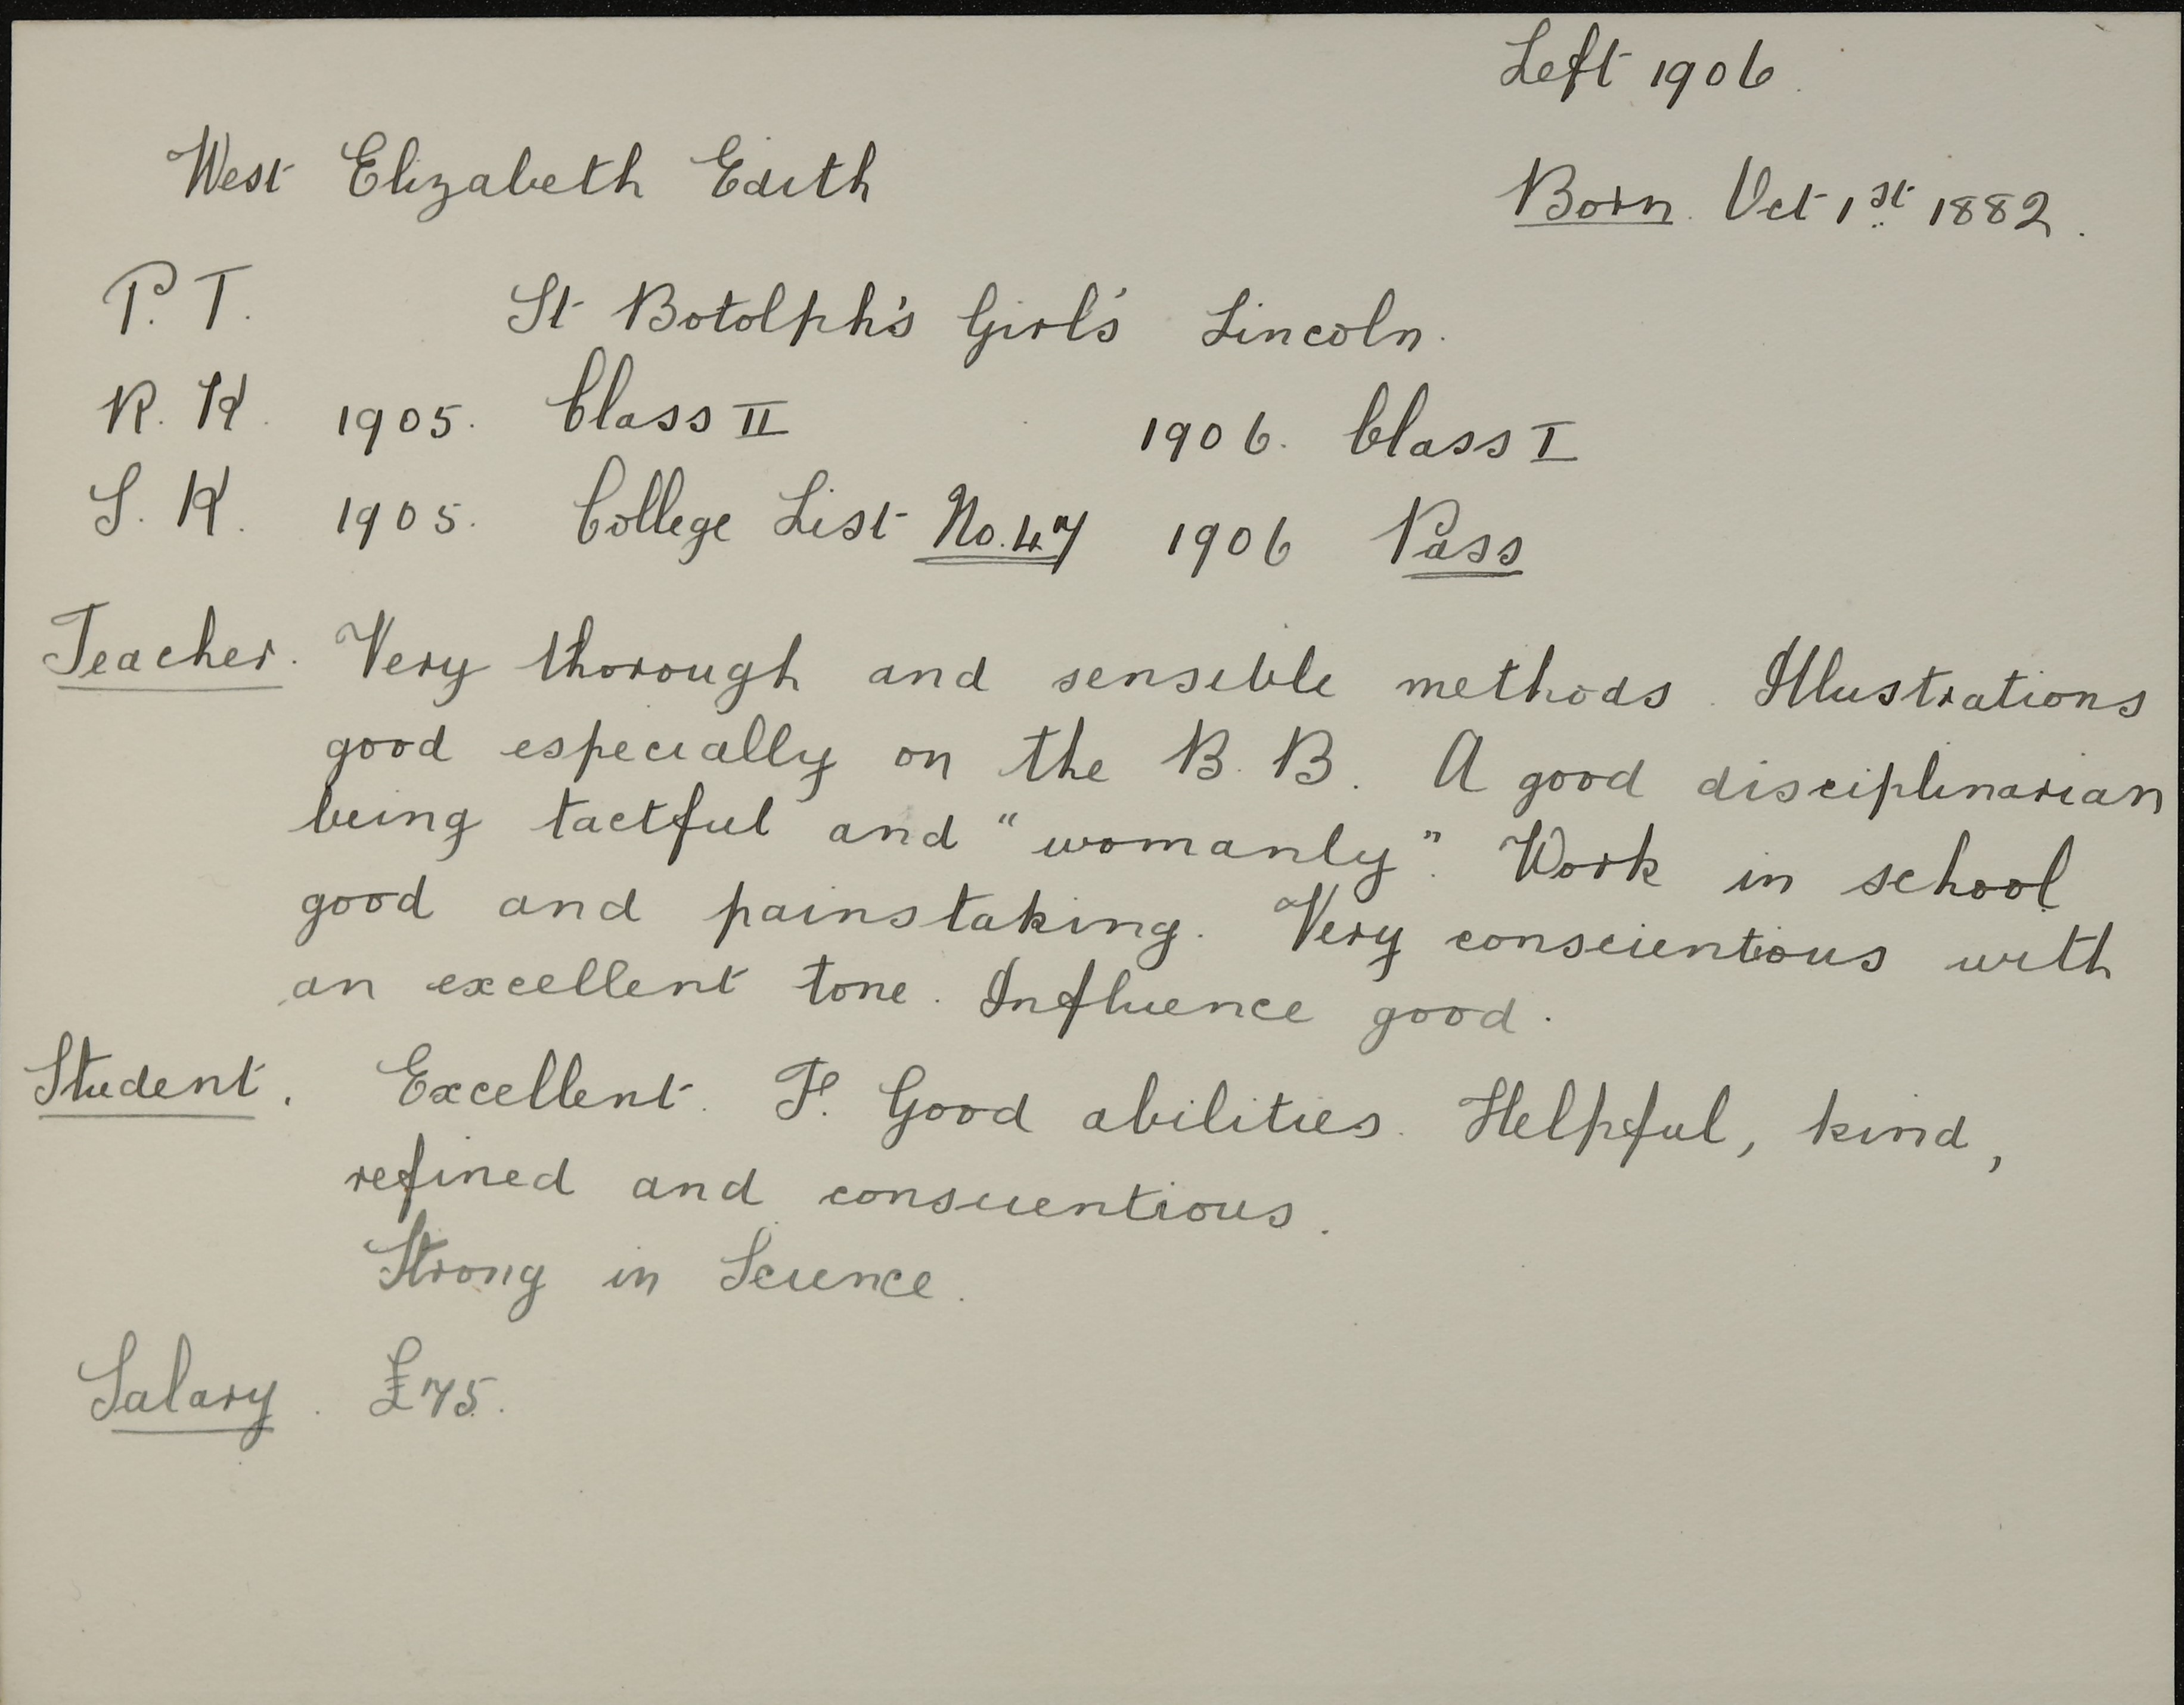 Left 1906.
West Elizabeth Edith
Born. Oct 1st 1882.
P. T. St Botolph's Girl's Lincoln.
R. K. 1905. Class II 1906. Class I
S. K. 1905. College List No. 47 1906 Pass
Teacher. Very thorough and sensible methods. Illustrations
good especially on the B. B. A good disciplinarian
being tactful and "womanly". Work in school
good and painstaking. Very conscientious with
an excellent tone. Influence good.
Student. Excellent. F. Good abilities. Helpful, kind,
refined and conscientious.
Strong in Science.
Salary. £75.